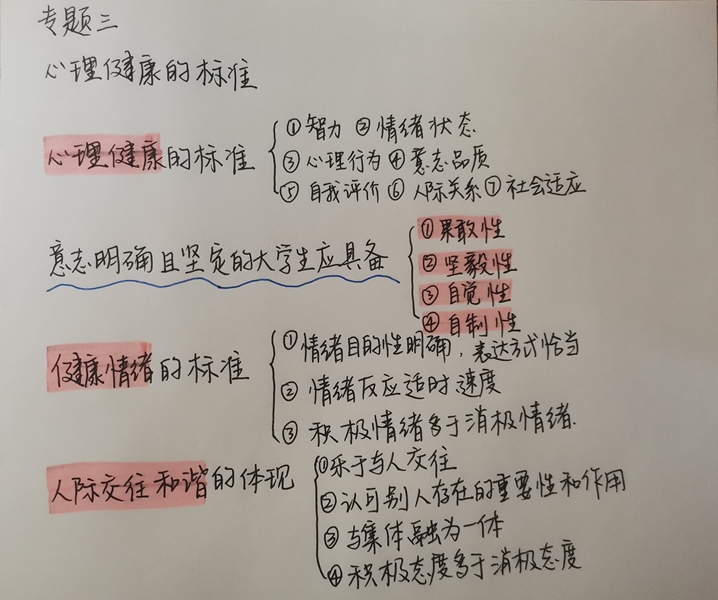 专题三
心理健康的标准
心理健康的标准
①智力 ②情绪状态
③心理行为 ④意志品质
⑤自我评价 ⑥人际关系 ⑦社会适应
意志明确且坚定的大学生应具备
①果敢性
②坚毅性
③自觉性
④自制性
健康情绪的标准
①情绪目的性明确，表达方式恰当
②情绪反应适时速度
③积极情绪多于消极情绪.
人际交往和谐的体现
①乐于与人交往
②认可别人存在的重要性和作用
③与集体融为一体
④积极态度多于消极态度